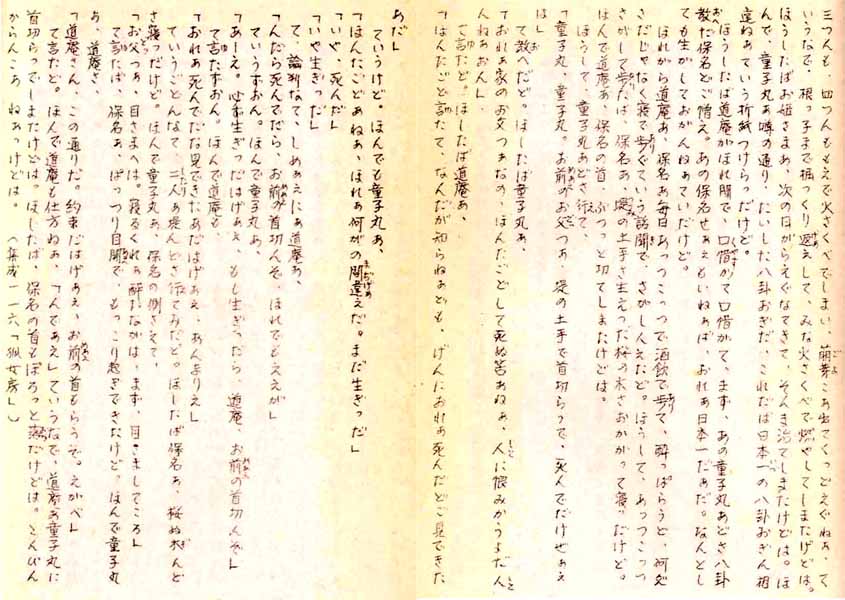 三つんも、四つんもえで火さくべでしまい、萠芽こあ出てくっどえぐねぁ、て
いうなで、根っ子まで掘っくり返えして、みな火さくべで燃やしてしまたけどは。
ほうしたばお姫さまあ、次の日がらえぐなてきて、そんま治てしまたけどは。ほ
んで、童子丸ぁ噂の通り、たいした八卦おぎだ、これだば日本一の八卦おぎん相
違ねぁていう折紙つけらっだけど。
ほうしたば道庵がほれ聞で、口惜がて口惜がて、まず、あの童子丸あどさ八卦
教だ保名どご憎え。あの保名せぁえもいねぁば、おれぁ日本一だぁだ。なんとし
ても生がしておがんねぁていだけど。
ほれから道庵ぁ、保名ぁ毎日あっつこっつで酒飲で歩て、酔っぱらうど、何処
さだじゃなく寝で歩ぐていう話聞で、さがしんえだど。ほうして、あっつこっつ
さがして歩たば、保名ぁ、堤の土手さ生えっだ桜の木さおかがって寝っだけど。
ほんで道庵ぁ、保名の首、ぶっつっと切てしまたけどは。
ほうして、童子丸あどさ行て、
「童子丸、童子丸。お前のお父つぁ、堤の土手で首切らっで、死んでだけぜぁえ
は」
て教へだど。ほしたば童子丸ぁ、
「おれぁ家のお父つぁなの、ほんたごどして死ぬ筈あねぁ、人に恨みかうよだ人
んねぁおん」
て言たど。ほしたば道庵ぁ、
「ほんたごど言たて、なんだが知らねぁども、げんにおれぁ死んだどご見できた
あだ」
ていうけど。ほんでも童子丸ぁ、
「ほんたごどあねぁ、ほれぁ何がの間違えだ。まだ生ぎっだ」
「いや、死んだ」
「いや生ぎっだ」
て、論判なて、しめぁえにぁ道庵ぁ、
「んだら死んでだら、お前の首切んぞ、ほれでもええが」
ていうずおん。ほんで童子丸ぁ、
「あーえ。必ず生ぎっだはげぁえ、もし生ぎっだら、道庵、お前の首切んぞ」
て言たずおん。ほんで道庵も
「おれぁ死んでだな見できたあだはげぁえ、あんまりえ」
ていうごどんなて、二人ぁ堤んどさ行てみだど。ほしたば保名ぁ、桜ぬ木んど
さ寝っだけど。ほんで童子丸ぁ、保名の側さえて、
「お父つぁ、目さまへは。寝るくれぁ酔たながは、まず、目さましてころ」
て言たば、保名ぁ、ぱっつり目開で、もっこり起ぎできたけど。ほんで童子丸
あ、道庵さ
「道庵さん、この通りだ。約束だはげぁえ、お前の首もらうぞ。えがべ」
て言たど。ほんで道庵も仕方ねぁ、「んであえ」ていうなで、道庵ぁ童子丸に
首切らっでしまたけどは。ほしたば、保名の首もぽろっと落だけどは。とんぴん
からんこぁ ねぁっけどは。 (集成一一六「狐女房」)